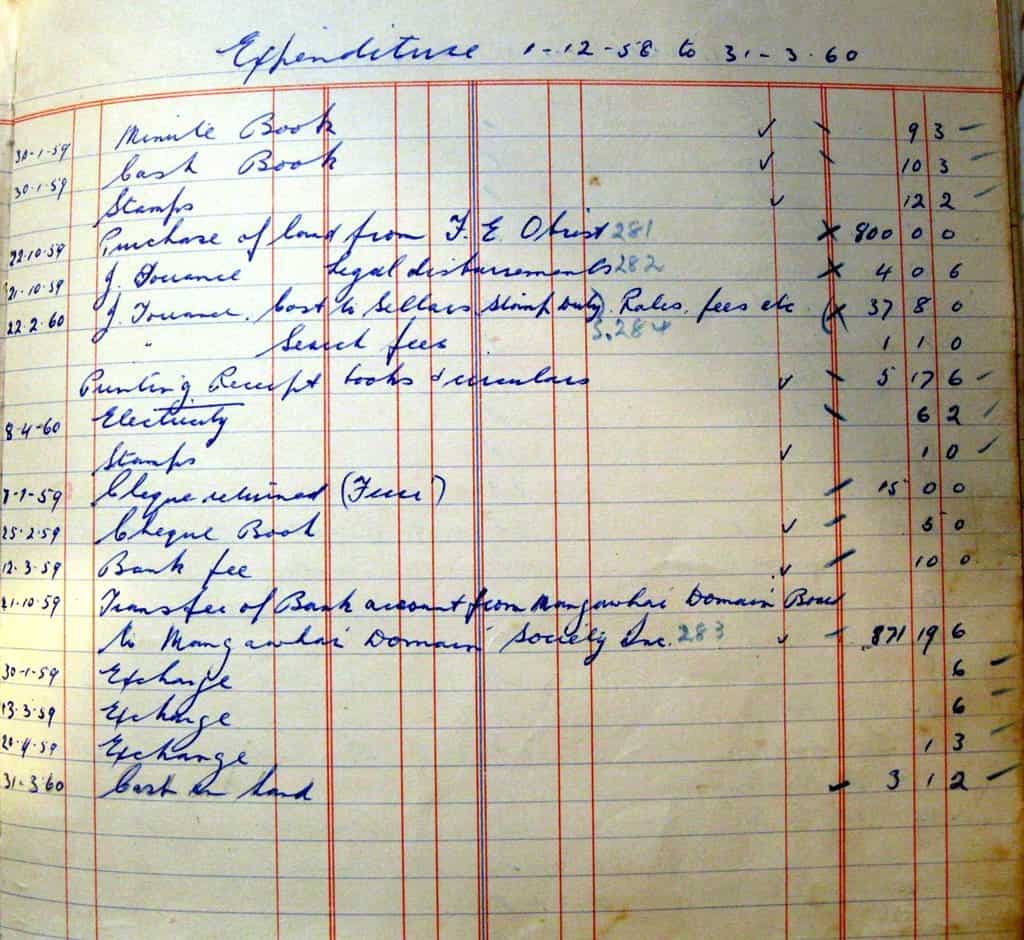 Expenditure 1-12-58 to 31-3-60
30-1-59 Minute Book 9 3
30-1-59 Cash Book 10 3
Stamps 12 2
22.10.59 Purchase of land from F. E. Obrist 281 800 0 0
21-10-59 J. Legal disbursements 282 4 0 6
22.2.60 J. Cost to Sellars Stamp Duty). Rates, fees etc 37 8 0
" Search fees 5.284 1 1 0
Printing Receipt books & circulars 5 17 6
8-4-60 Electricity 6 2
Stamps 1 0
Cheque returned 15 0 0
25-2-59 Cheque Book 5 0
12-3-59 Bank fee 10 0
21-10-59 Transfer of Bank account from Mangawhai Domain Board
to Mangawhai Domain Society Inc. 283 871 19 6
30-1-59 Exchange 6
13-3-59 Exchange 6
20-4-59 Exchange 1 3
31-3-60 Cash on hand 3 1 2